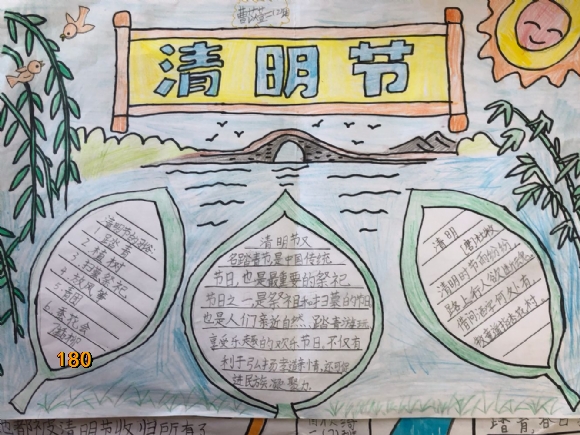 清明节
清明节的习俗:
1. 踏青
2. 植树
3. 扫墓祭祀
4. 放风筝
5.
6.
180
清明节又
名踏青节是中国传统
节日,也是最重要的祭祀
节日之一,是祭祖和扫墓的节日
也是人们亲近自然、踏青游玩,
享受乐趣的欢乐节日,不仅有
利于弘扬孝道亲情,还可促
进民族凝聚力
清明 (唐)杜牧
清明时节雨纷纷,
路上行人欲断魂。
借问酒家何处有,
牧童遥指杏花村。
清明节
所有了
踏青,春日